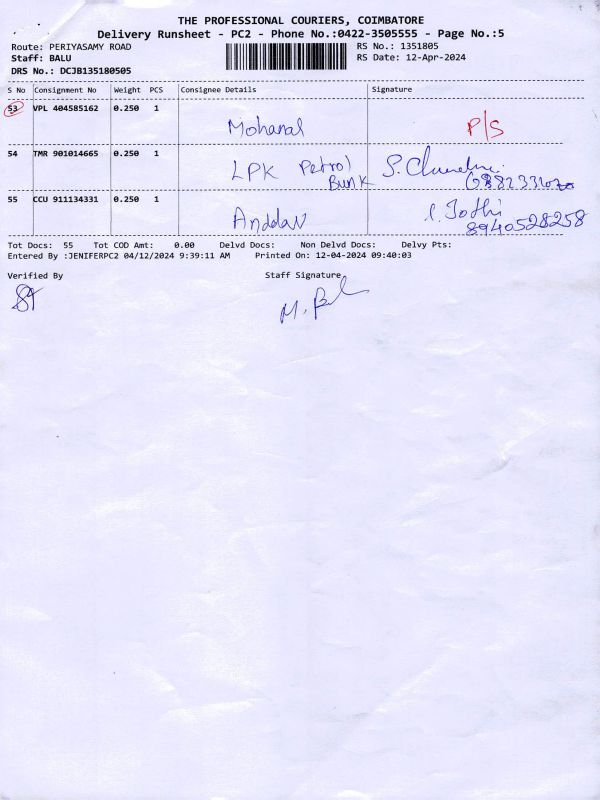 THE PROFESSIONAL COURIERS, COIMBATORE
Delivery Runsheet - PC2 - Phone No.:0422-3505555 - Page No.:5
Route: PERIYASAMY ROAD RS No.: 1351805
Staff: BALU RS Date: 12-Apr-2024
DRS No.: DCJB135180505
S No Consignment No Weight PCS Consignee Details Signature
53 VPL 404585162 0.250 1 Mohanal P/S
54 TMR 901014665 0.250 1 LPK Petrol Bunk
55 CCU 911134331 0.250 1 Anddav
8940528258
Tot Docs: 55 Tot COD Amt: 0.00 Delvd Docs: Non Delvd Docs: Delvy Pts:
Entered By :JENIFERPC2 04/12/2024 9:39:11 AM Printed On: 12-04-2024 09:40:03
Verified By Staff Signature